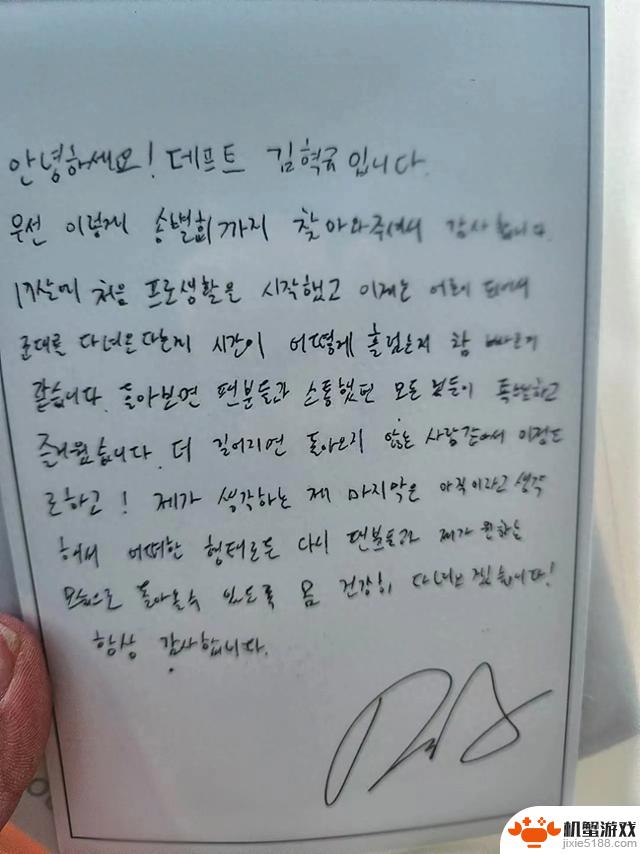 안녕하세요! 데프트 김혁규입니다.
우선 이렇게 송별회까지 찾아와주셔서 감사합니다.
17살에 처음 프로생활을 시작했고 이제는 어른이 되어서
군대를 다녀온다는게 시간이 어떻게 흘렀는지 참 빠른거
같습니다. 돌아보면 팬분들과 소통했던 모든 날들이 특별하고
즐거웠습니다. 더 길어지면 돌아오지 않는 사람같아서 이정도
로하고! 제가 생각하는 제 마지막은 아직이라고 생각
해서 어떠한 형태로든 다시 팬분들과 제가 원하는
모습으로 돌아올수 있도록 몸 건강히 다녀오겠습니다!
항상 감사합니다.
机蟹游戏
jixie5188.com